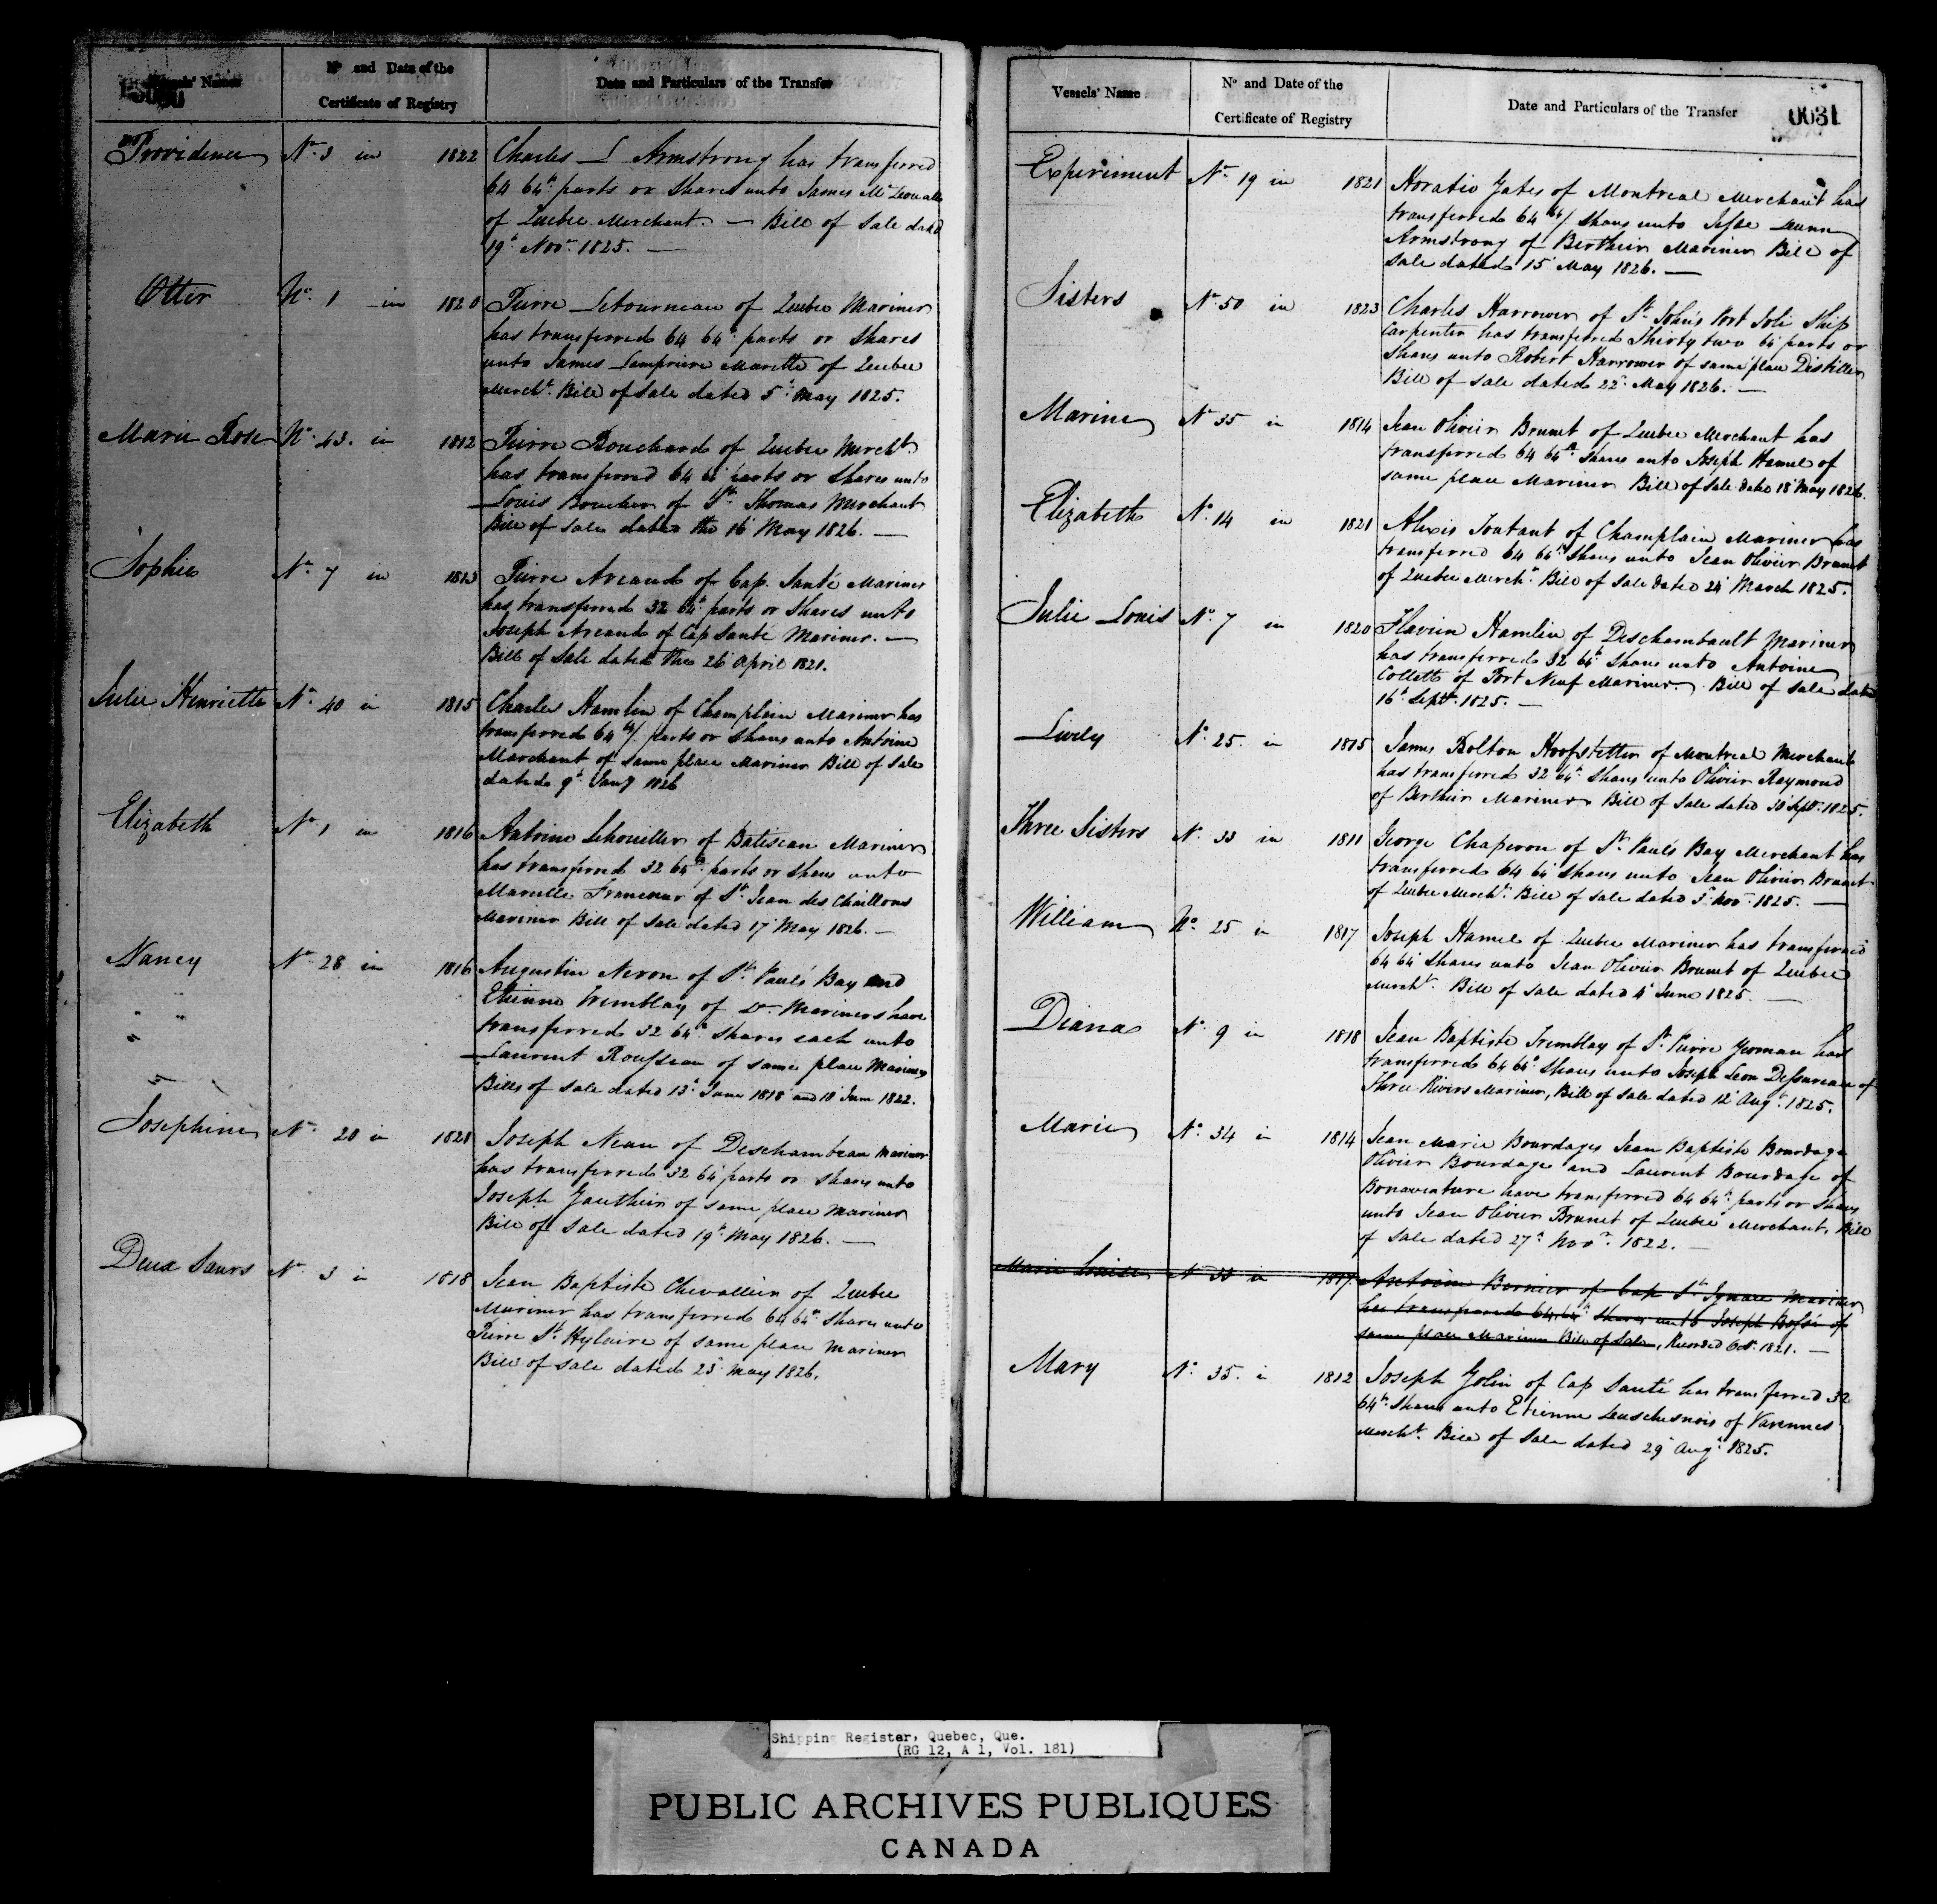 Vessels' Names
Nº and Date of the
Certificate of Registry
Date and Particulars of the Transfer
Providence Nº 3 in 1822 Charles L Armstrong has transferred
64 64th parts or Shares unto James
of Quebec Merchant. — Bill of Sale dated
19th Novr 1825. —
Otter Nº 1 in 1820 Pierre Letourneau of Quebec Mariner
has transferred 64 64th parts or Shares
unto James Lampriere Marette of Quebec
Mercht. Bill of Sale dated 5th May 1825.
Marie Rose Nº 43. in 1812 Pierre Bouchard of Quebec Mercht.
has transferred 64 64 parts or Shares unto
Louis Boucher of St Thomas Merchant
Bill of Sale dated the 16 May 1826. —
Sophie Nº 7 in 1813 Pierre Arcand of Cap Santé Mariner
has transferred 32 64th parts or Shares unto
Joseph Arcand of Cap Santé Mariner. —
Bill of Sale dated the 26 April 1821.
Julie Henriette Nº 40 in 1815 Charles Hamlin of Champlain Mariner has
transferred 64 th/ parts or Shares unto Antoine
Marchant of same place Mariner Bill of Sale
dated 9th Jany 1826
Elizabeth Nº 1 in 1816 Antoine Lehouiller of Batiscan Mariner
has transferred 32 64th parts or Shares unto
Marcelle Francœur of St Jean des Chaillons
Mariner Bill of Sale dated 17 May 1826. —
Nancy Nº 28 in 1816 Augustin Neron of St Paul's Bay and
Etienne Tremblay of Do Mariners have
transferred 32 64th Shares each unto
Laurent Rousseau of same place Mariner
Bills of Sale dated 13th June 1818 and 18 June 1822.
Josephine Nº 20 in 1821 Joseph Neau of Deschambeau Mariner
has transferred 32 64 parts or Shares unto
Joseph Gauthier of same place Mariner
Bill of Sale dated 19th May 1826. —
Deux Sœurs Nº 3 in 1818 Jean Baptiste Chevallier of Quebec
Mariner has transferred 64 64th Shares unto
Pierre St Hylaire of same place Mariner
Bill of Sale dated 23 May 1826.
Vessels' Name
Nº and Date of the
Certificate of Registry
Date and Particulars of the Transfer
0031
Experiment Nº 19 in 1821 Horatio Gates of Montreal Merchant has
transferred 64 64/ Shares unto Jesse Dunn
Armstrong of Berthier Mariner Bill of
Sale dated 15 May 1826. —
Sisters Nº 50 in 1823 Charles Harrower of St John's Port Joli Ship
Carpenter has transferred Thirty two 64 parts or
Shares unto Robert Harrower of same place Distiller
Bill of Sale dated 22d May 1826. —
Marine Nº 35 in 1814 Jean Olivier Brunet of Quebec Merchant has
transferred 64 64th Shares unto Joseph Hamel of
same place Mariner Bill of Sale dated 18 May 1826.
Elizabeth Nº 14 in 1821 Alexis Toutant of Champlain Mariner has
transferred 64 64th Shares unto Jean Olivier Brunet
of Quebec Mercht. Bill of Sale dated 24 March 1825.
Julie Louis Nº 7 in 1820 Flavien Hamlin of Deschambault Mariner
has transferred 32 64th Shares unto Antoine
Collette of Port Neuf Mariner. Bill of Sale dated
16th Septr 1825. —
Lively Nº 25. in 1815 James Bolton Hoofstetter of Montreal Merchant
has transferred 32 64th Shares unto Olivier Raymond
of Berthier Mariner Bill of Sale dated 30 Sept. 1825.
Three Sisters Nº 33 in 1811 George Chaperon of St Paul's Bay Merchant has
transferred 64 64 Shares unto Jean Olivier Brunet
of Quebec Mercht. Bill of Sale dated 5 Novr 1825. —
William Nº 25 in 1817 Joseph Hamel of Quebec Mariner has transferred
64 64 Shares unto Jean Olivier Brunet of Quebec
Mercht. Bill of Sale dated 4 June 1825. —
Diana Nº 9 in 1818 Jean Baptiste Tremblay of St Pierre Yeoman has
transferred 64 64th Shares unto Joseph Leon Dessureau of
Three Rivers Mariner, Bill of Sale dated 12 Augt. 1825.
Marie Nº 34 in 1814 Jean Marie Bourdages Jean Baptiste Bourdage
Olivier Bourdage and Laurent Bourdage of
Bonaventure have transferred 64 64th parts or Shares
unto Jean Olivier Brunet of Quebec Merchant, Bill
of Sale dated 27th Novr. 1822. —
Marie Louise Nº 33 in 1817. Antoine Bernier of Cap St Ignace Mariner
has transferred 64 64th Shares unto Joseph Bossé of
same place Mariner Bill of Sale, Recorded Oct. 1821. —
Mary Nº 35. in 1812 Joseph Golin of Cap Santé has transferred 32
64th Shares unto Etienne Duschesnois of Varennes
Mercht. Bill of Sale dated 29 Augt. 1825.
Shipping Register, Quebec, Que.
(RG 12, A 1, Vol. 181)
PUBLIC ARCHIVES PUBLIQUES
CANADA